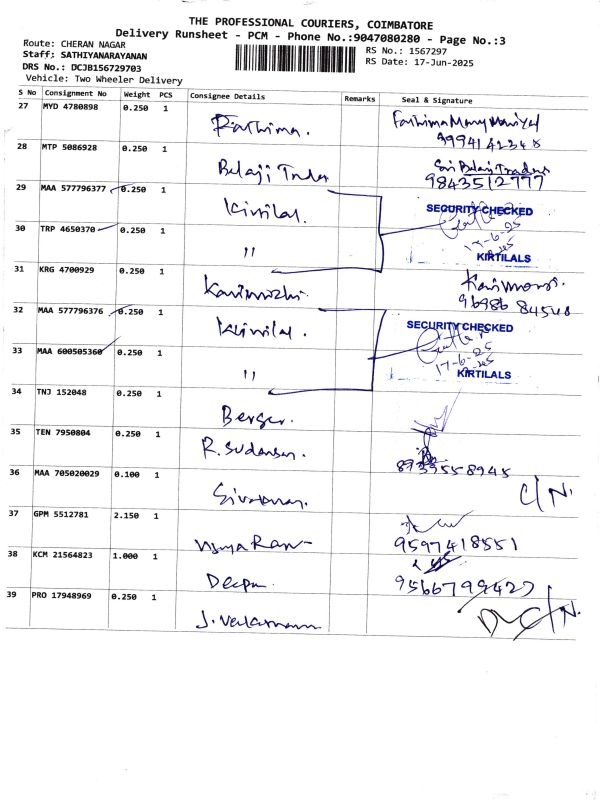 THE PROFESSIONAL COURIERS, COIMBATORE
Delivery Runsheet - PCM - Phone No.:9047080280 - Page No.:3
Route: CHERAN NAGAR
RS No.: 1567297
Staff: SATHIYANARAYANAN
RS Date: 17-Jun-2025
DRS No.: DCJB156729703
Vehicle: Two Wheeler Delivery
S No Consignment No Weight PCS Consignee Details Remarks Seal & Signature
27 MYD 4780898 0.250 1
Fathima. Fathima Mary
28 MTP 5086928 0.250 1
Balaji Trades Sri Balaji Traders
9843512777
29 MAA 577796377 0.250 1
Kirtilal. SECURITY CHECKED
17-6-25
30 TRP 4650370 0.250 1
" KIRTILALS
31 KRG 4700929 0.250 1
Kanimozhi. Kanimozhi
96986 84548
32 MAA 577796376 0.250 1
Kirtilal SECURITY CHECKED
17-6-25
33 MAA 600505360 0.250 1
" KIRTILALS
34 TNJ 152048 0.250 1
Berger.
35 TEN 7950804 0.250 1
R. Sudarsan. 8939558945
36 MAA 705020029 0.100 1
C/N.
37 GPM 5512781 2.150 1
9597418551
38 KCM 21564823 1.000 1
Deepa. 9566799427
39 PRO 17948969 0.250 1
D C/N.